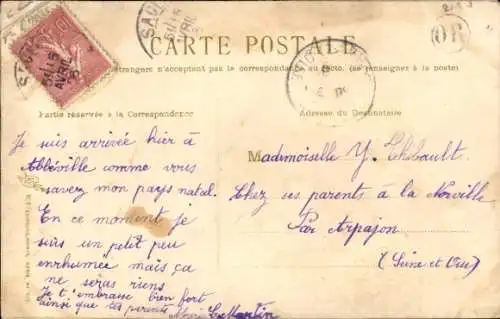 CARTE POSTALE
étrangers n'acceptent pas la correspondance au recto. (se renseigner à la poste)
OR
Partie réservée à la Correspondance
Adresse du Destinataire
Je suis arrivée hier à
Abléville comme vous
savez mon pays natal.
En ce moment je
suis un petit peu
enrhumée mais ça
ne seras riens
Je t'embrasse bien fort
ainsi que tes parents
Martin
Mademoiselle Y. Thibault
Chez ses parents à la Norville
Par Arpajon
(Seine et Oise)